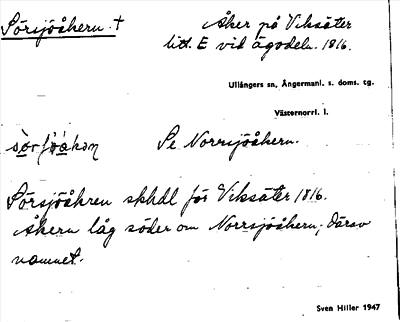 Sörsjöåkern. †
Åker på Viksäter
litt. E vid ägodeln. 1816.
Ullångers sn, Ångermanl. s. doms. tg.
Västernorrl. l.
Se Norrsjöåkern.
Sörsjöåkren skhdl för Viksäter 1816.
Åkern låg söder om Norrsjöåkern; därav
namnet.
Sven Hiller 1947